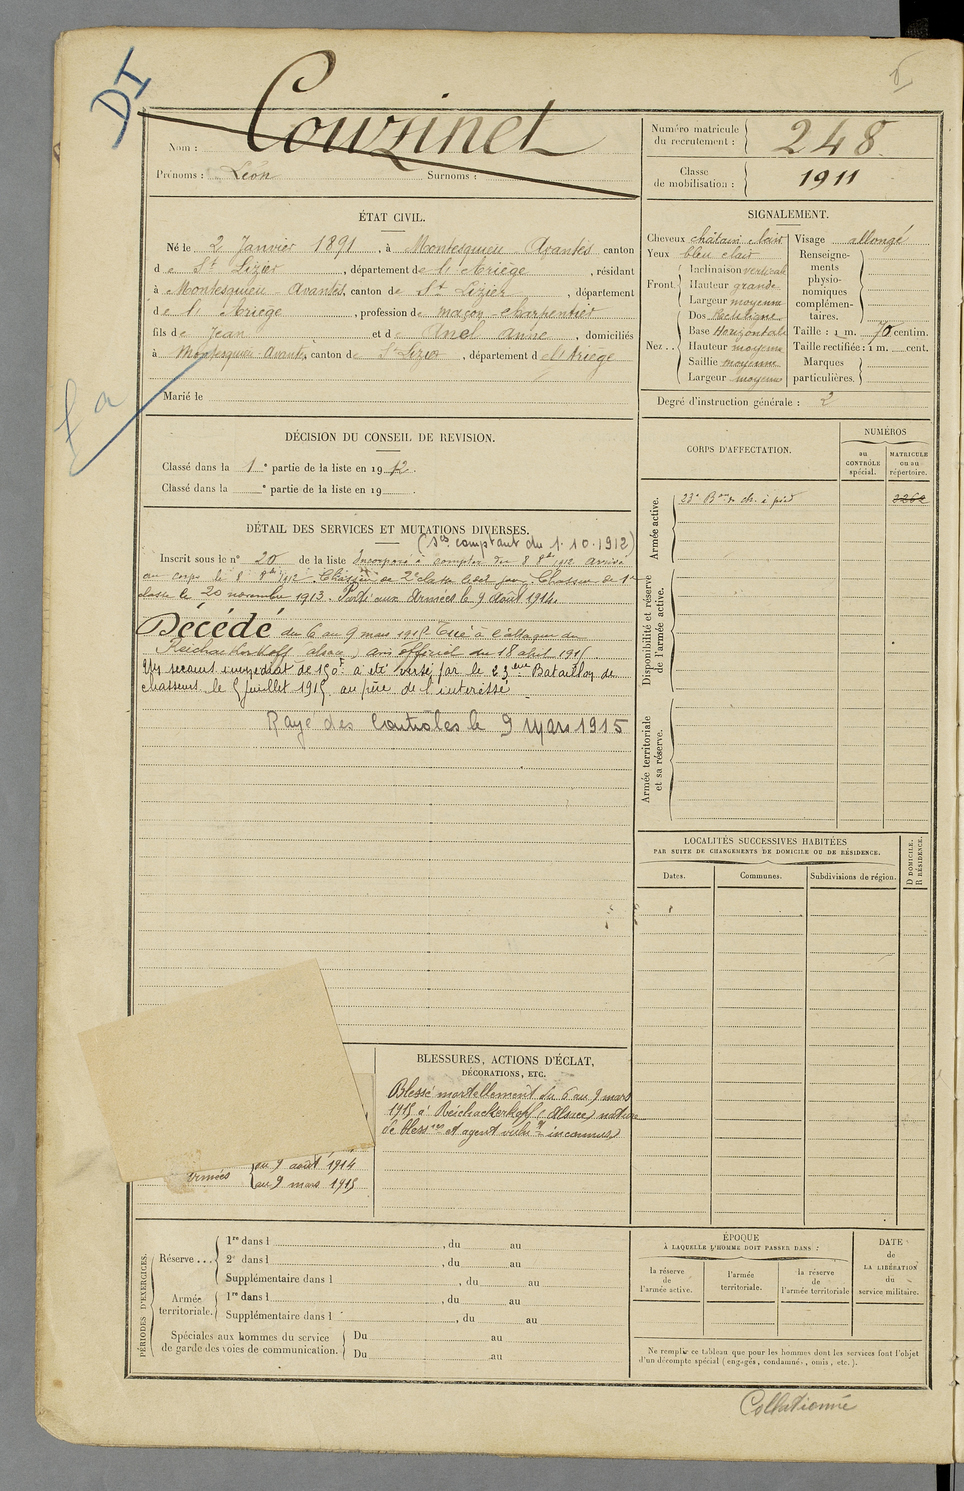 DI
Nom : Couzinet
Prénoms : Léon Surnoms :
Numéro matricule du recrutement : 248
Classe de mobilisation : 1911
ÉTAT CIVIL.
Né le 2 Janvier 1891, à Montesquieu-Avantès canton
de St Lizier, département de l'Ariège, résidant
à Montesquieu-Avantès, canton de St Lizier, département
de l'Ariège, profession de maçon-charpentier
fils de Jean et de Anel Anne, domiciliés
à Montesquieu-Avantès, canton de St Lizier, département de l'Ariège
Marié le
SIGNALEMENT.
Cheveux châtain clair
Yeux bleu clair
Front Inclinaison verticale
Hauteur grande
Largeur moyenne
Nez .. Dos Rectiligne
Base Horizontale
Hauteur moyenne
Saillie moyenne
Largeur moyenne
Visage allongé
Renseignements physionomiques complémentaires.
Taille : 1 m. 70 centim.
Taille rectifiée : 1 m. cent.
Marques particulières.
Degré d'instruction générale : 2
DÉCISION DU CONSEIL DE REVISION.
Classé dans la 1e partie de la liste en 1912.
Classé dans la e partie de la liste en 19 .
CORPS D'AFFECTATION.
NUMÉROS
au CONTRÔLE spécial.
MATRICULE ou au répertoire.
Armée active.
23e Bon de ch. à pied 3262
Disponibilité et réserve de l'armée active.
Armée territoriale et sa réserve.
DÉTAIL DES SERVICES ET MUTATIONS DIVERSES.
(Ses comptant du 1.10.1912)
Inscrit sous le n° 20 de la liste Incorporé à compter du 8 8bre 1912 arrivé
au corps le 8 8bre 1912. Chasseur de 2e classe ledit jour. Chasseur de 1re
classe le 20 novembre 1913. Parti aux Armées le 9 août 1914.
Décédé du 6 au 9 mars 1915 Tué à l'attaque du
Reichackerkopff (alsace) avis officiel du 18 avril 1915.
Un secours immédiat de 150f a été versé par le 23ème Bataillon de
chasseurs le 5 juillet 1915 au père de l'intéressé
Rayé des Contrôles le 9 Mars 1915
LOCALITÉS SUCCESSIVES HABITÉES
PAR SUITE DE CHANGEMENTS DE DOMICILE OU DE RÉSIDENCE.
Dates. Communes. Subdivisions de région. D DOMICILE. R RÉSIDENCE.
BLESSURES, ACTIONS D'ÉCLAT,
DÉCORATIONS, ETC.
Blessé mortellement du 6 au 9 mars
1915 à Reichackerkopf (Alsace) nature
de blessres et agent vulnt inconnus)
Armées
du 9 août 1914
au 9 mars 1915
PÉRIODES D'EXERCICES.
Réserve ... 1re dans l , du au
2e dans l , du au
Supplémentaire dans l , du au
Armée territoriale. 1re dans l , du au
Supplémentaire dans l , du au
Spéciales aux hommes du service de garde des voies de communication. Du au
Du au
ÉPOQUE
À LAQUELLE L'HOMME DOIT PASSER DANS :
la réserve de l'armée active.
l'armée territoriale.
la réserve de l'armée territoriale
DATE de LA LIBÉRATION du service militaire.
Ne remplir ce tableau que pour les hommes dont les services font l'objet
d'un décompte spécial (engagés, condamnés, omis, etc.).
Collationné